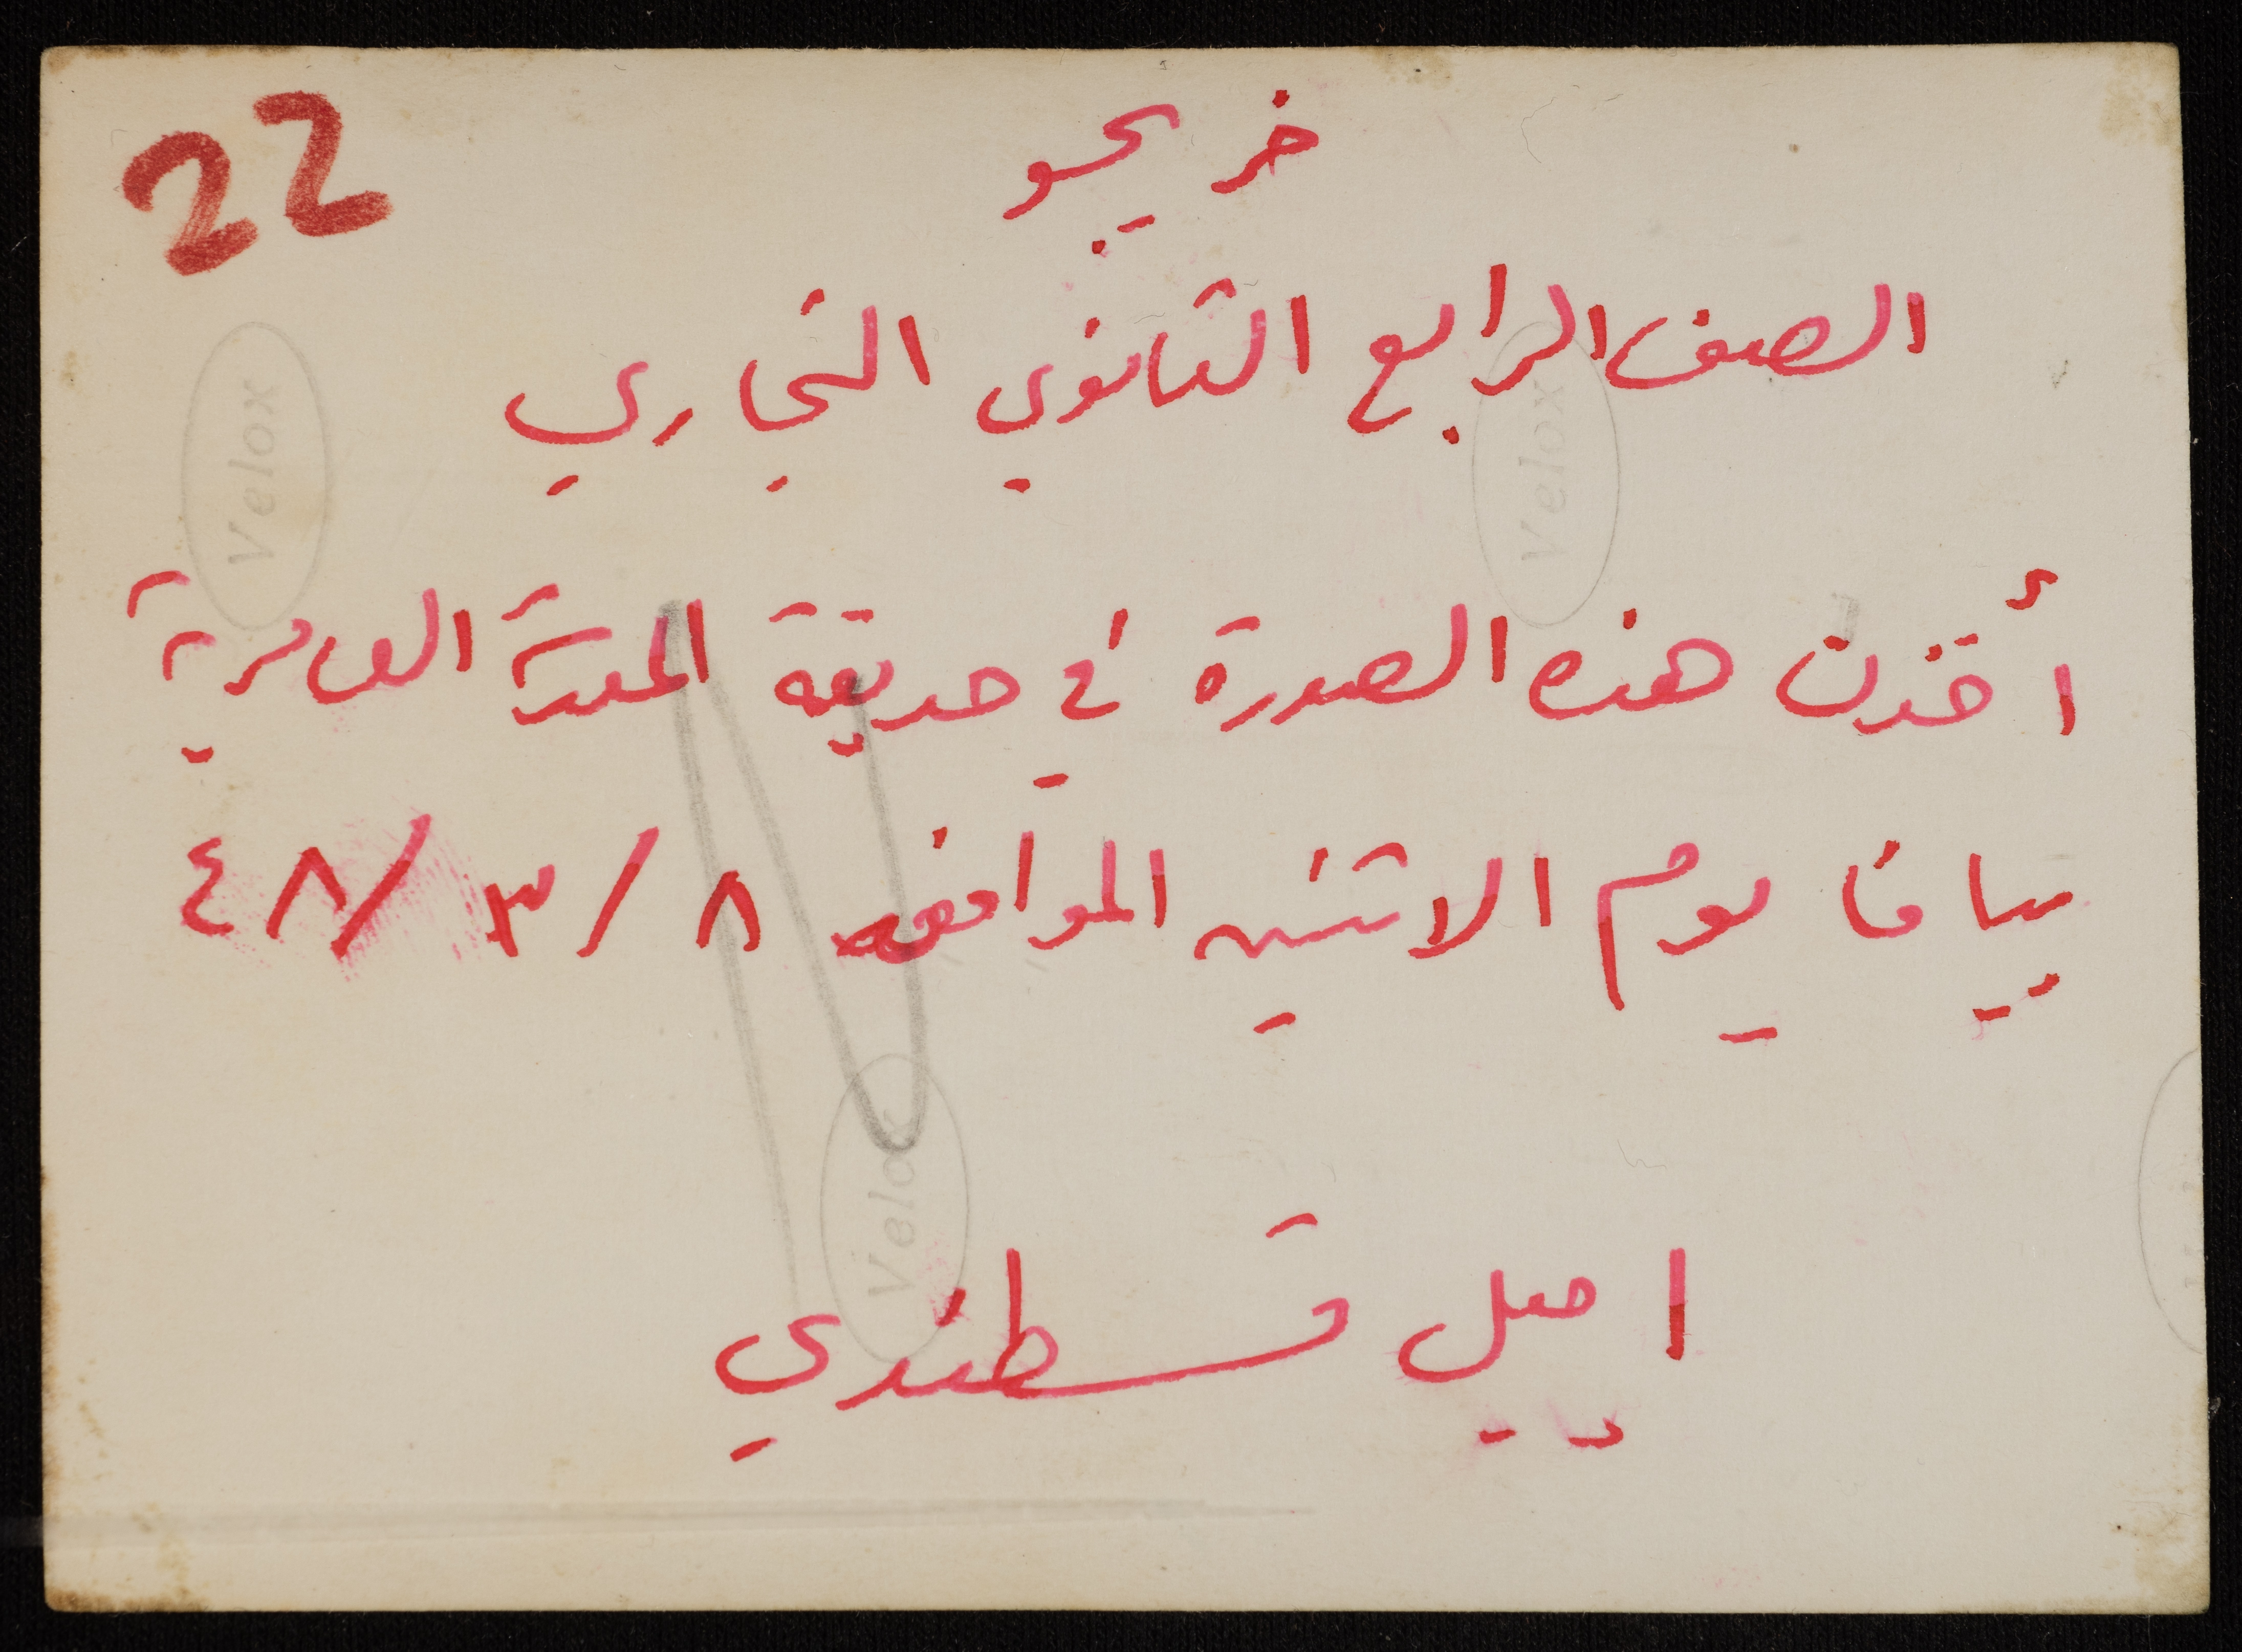 22
خريجو
الصف الرابع الثانوي التجاري
أخذت هذه الصورة في حديقة المدرسة العامرية
بيافا يوم الاثنين الموافق ٨/٣/٤٨
اميل قسطندي
Velox
Velox
Velox